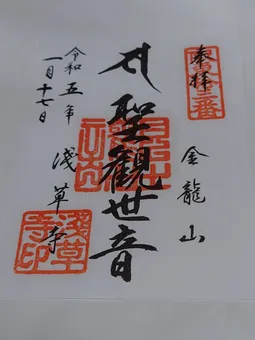 奉拝
金龍山
聖観世音
浅草寺
令和五年
一月十七日
浅草寺印